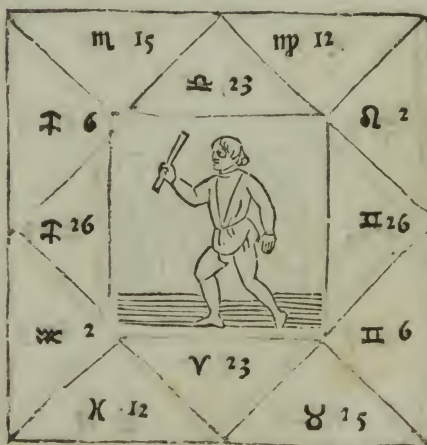 ♏ 15
♍ 12
♎ 23
♐ 6
♌ 2
♐ 26
♊ 26
♒ 2
♊ 6
♈ 23
♓ 12
♉ 15